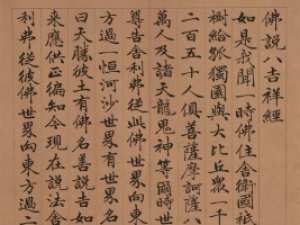 佛說八吉祥經
如是我聞一時佛住舍衛國祇
樹給孤獨園與大比丘衆一千
二百五十人俱菩薩摩訶薩八
萬人及諸天龍鬼神等爾時世
尊告舍利弗從此佛世界向東
方過一恒河沙世界有世界名
曰天勝彼土有佛名善説吉如
來應供正徧知令現在説法舍
利弗從彼佛世界向東方過二